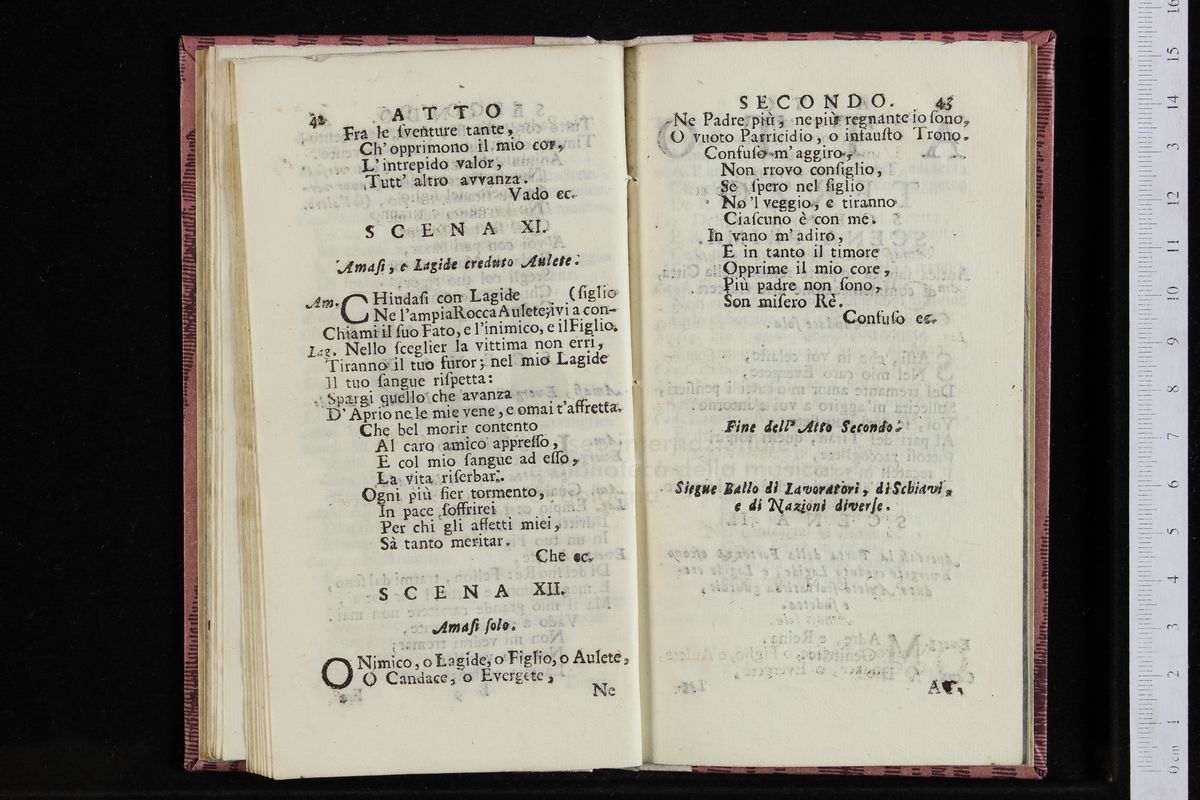 42 ATTO
Fra le ſventure tante,
Ch'opprimono il mio cor,
L'intrepido valor,
Tutt' altro avvanza.
Vado ec.
SCENA XI.
Amaſi, e Lagide creduto Aulete.
Am. CHiudaſi con Lagide (figlio
Ne l'ampiaRocca Aulete; ivi a con-
Chiami il ſuo Fato, e l'inimico, e il Figlio.
Lag. Nello ſceglier la vittima non erri,
Tiranno il tuo furor; nel mio Lagide
Il tuo ſangue riſpetta:
Spargi quello che avanza
D'Aprio ne le mie vene, e omai t'affretta.
Che bel morir contento
Al caro amico appreſſo,
E col mio ſangue ad eſſo,
La vita riſerbar.
Ogni più fier tormento,
In pace ſoffrirei
Per chi gli affetti miei,
Sà tanto meritar.
Che ec.
SCENA XII.
Amaſi ſolo.
O Nimico, o Lagide, o Figlio, o Aulete,
O Candace, o Evergete,
Ne
SECONDO. 43
Ne Padre più, ne più regnante io ſono,
O vuoto Parricidio, o infauſto Trono.
Confuſo m'aggiro,
Non rrovo conſiglio,
Se ſpero nel figlio
No'l veggio, e tiranno
Ciaſcuno è con me.
In vano m'adiro,
E in tanto il timore
Opprime il mio core,
Più padre non ſono,
Son miſero Rè.
Confuſo ec.
Fine dell' Atto Secondo.
Siegue Ballo di Lavoratori, di Schiavi,
e di Nazioni diverſe.